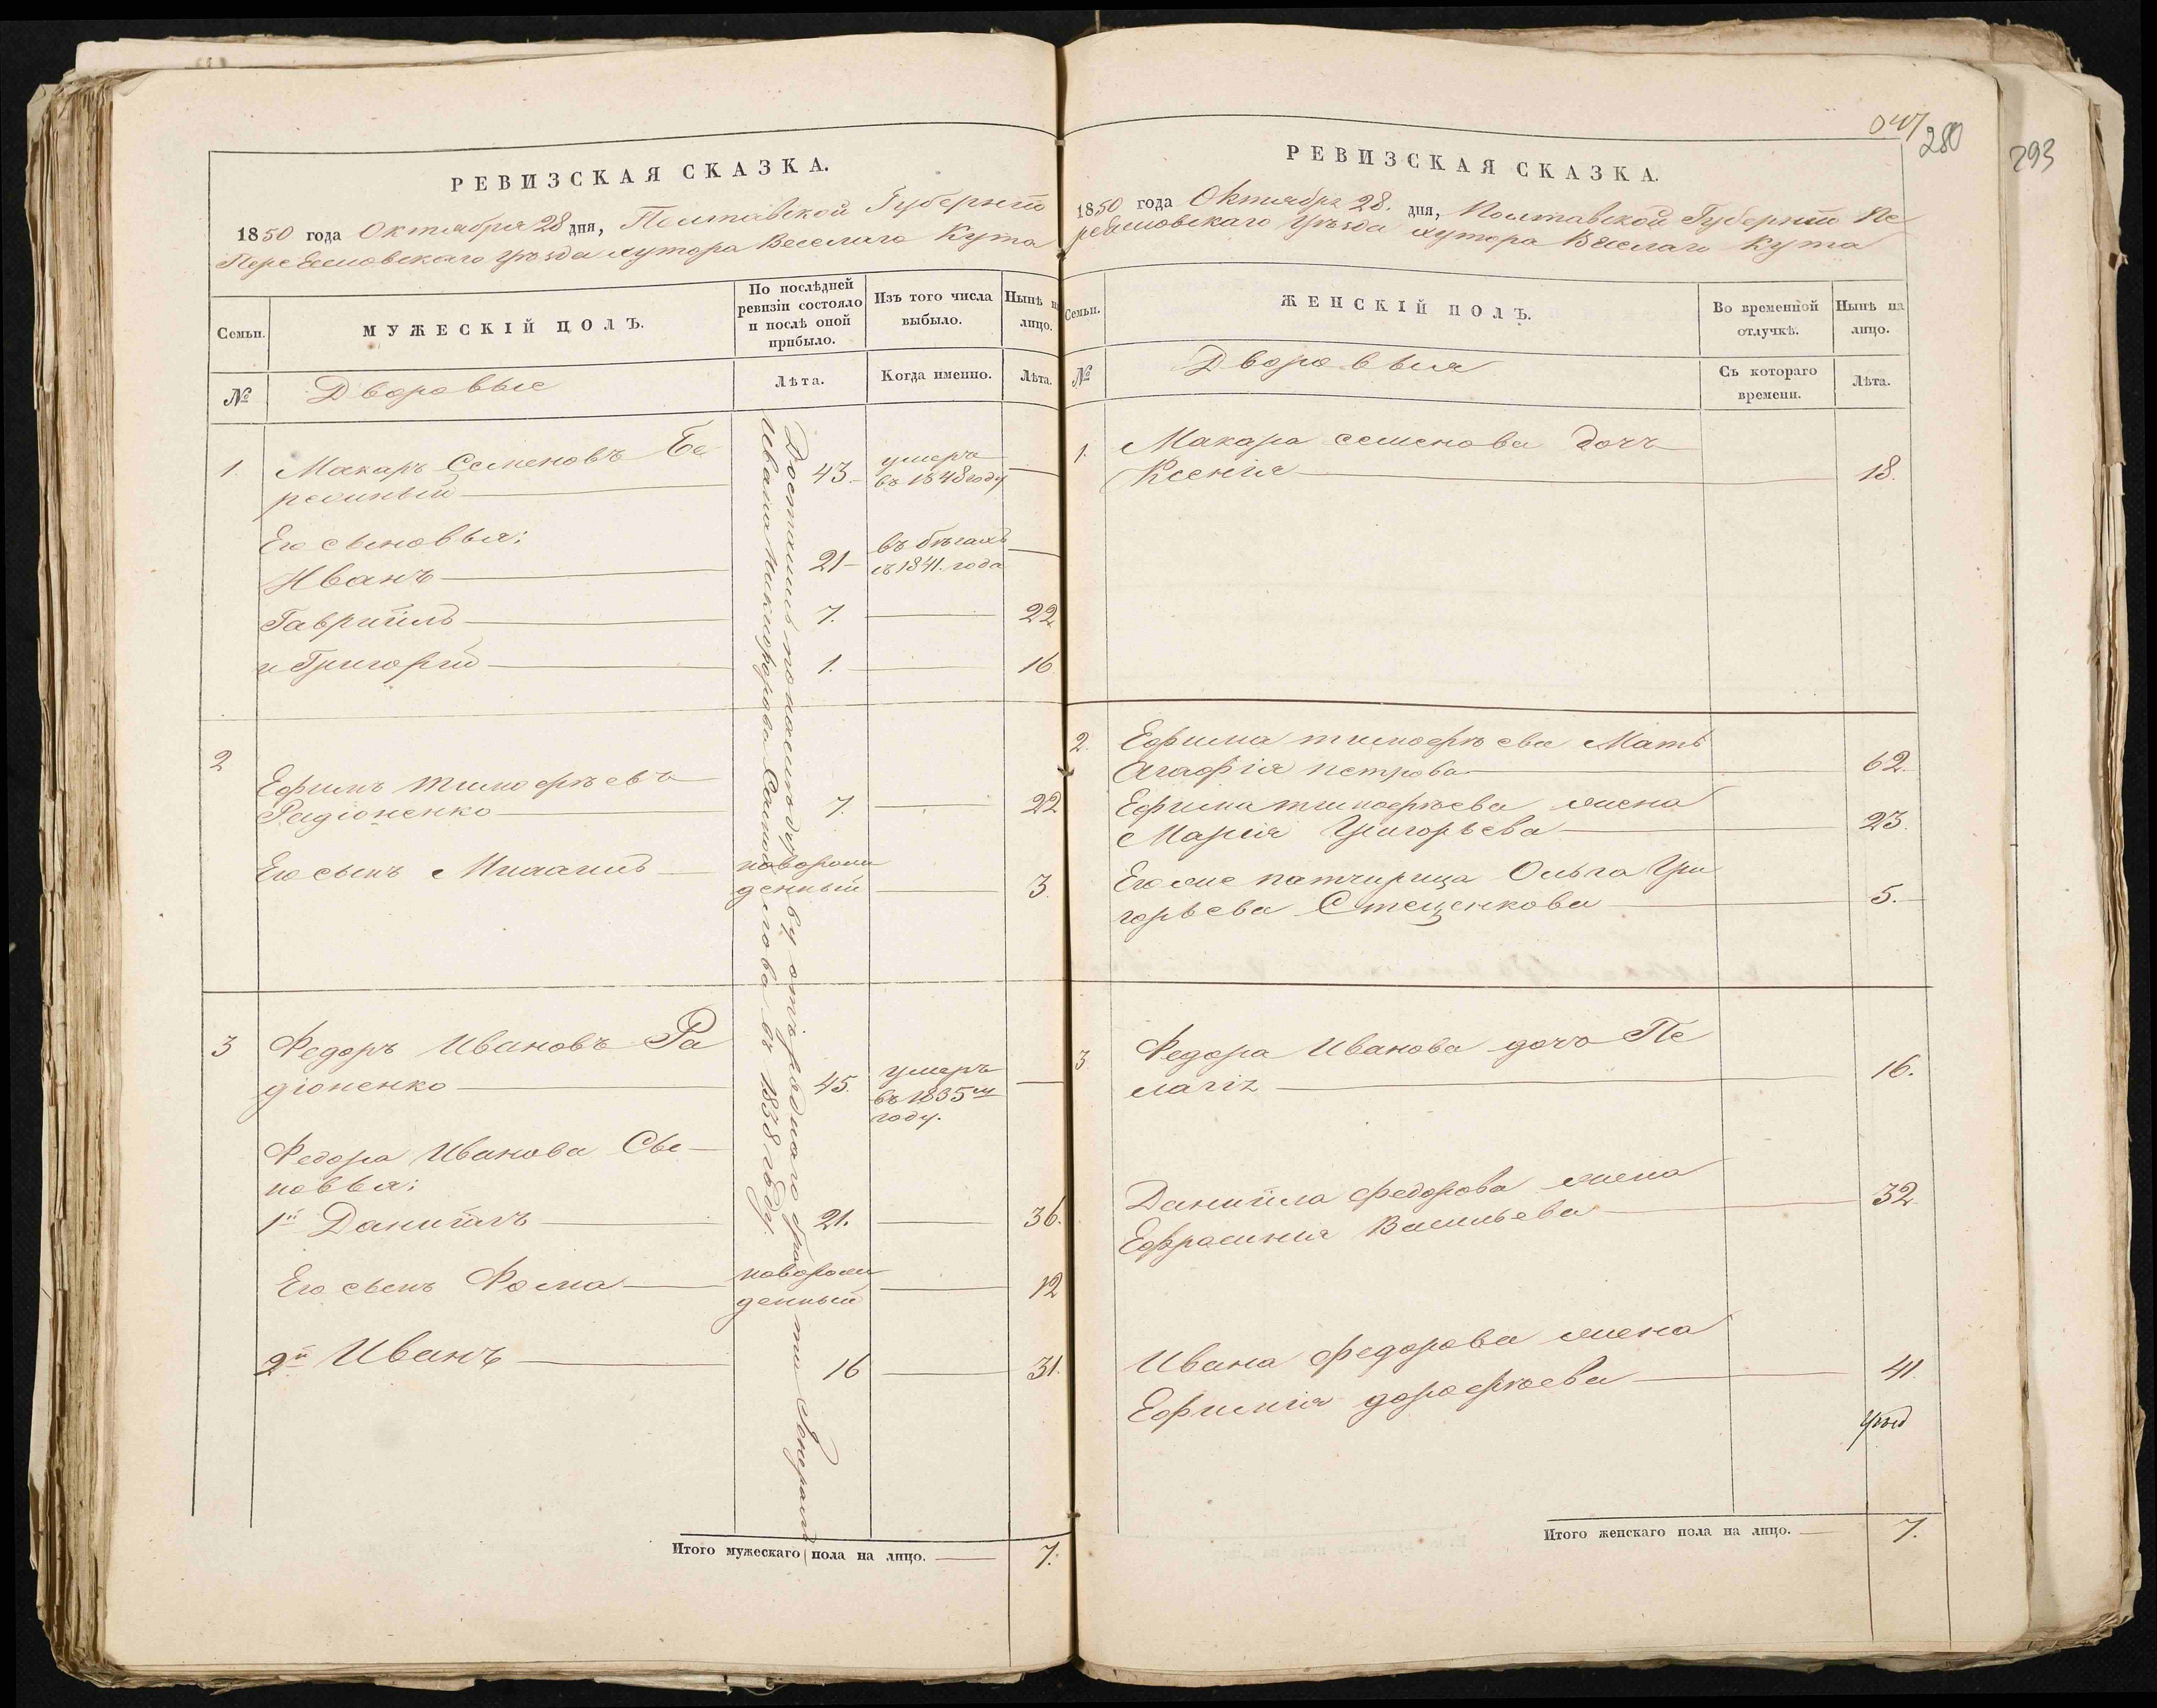 РЕВИЗСКАЯ СКАЗКА.
1850 года Октября 28 дня, Полтавской Губернiи
Переяславскаго уѣзда хутора Веселаго Кута
Семьи.
МУЖЕСКIЙ ПОЛЪ.
По послѣдней
ревизiи состояло
и послѣ оной
прибыло.
Изъ того числа
выбыло.
Нынѣ на
лицо.
№
Дворовые
Лѣта.
Когда именно.
Лѣта.
1. Макаръ Семеновъ 43 умеръ
въ 1848 году
Его сыновья:
Иванъ 21 въ бѣгахъ
съ 1841. года
Гаврiилъ 7. 22
и Григорiй 1. 16
2
Ефимъ Тимофѣевъ
Радiоненко 7. 22
Его сынъ Михаилъ новорож
денный 3.
3 Федоръ Ивановъ Ра
дiоненко 45. умеръ
въ 1835м
году.
Федора Иванова Сы
новья:
1й Данiилъ 21. 36.
Его сынъ Фома новорож
денный 12
2й Иванъ 16 31.
Достались по наслѣдству отъ роднаго брата Генералъ
Ивана Никифорова Самойлова въ 1838 году.
Итого мужескаго пола на лицо. 7.
047
280
293
РЕВИЗСКАЯ СКАЗКА.
1850 года Октября 28. дня, Полтавской Губернiи Пе
реяславскаго уѣзда хутора Веселаго Кута
Семьи.
ЖЕНСКIЙ ПОЛЪ.
Во временной
отлучкѣ.
Нынѣ на
лицо.
№
Дворовыя
Съ котораго
времени.
Лѣта.
1. Макара семенова дочь
Ксенiя 18.
2. Ефима тимофѣева Мать
Агафiя петрова 62.
Ефима тимофѣева жена
Марiя Григорьева 23.
Его же патчирица Ольга Гри
горьева Стеценкова 5.
3 Федора Иванова дочь Пе
лагiя 16.
Данiила федорова жена
Ефросинiя Васильева 32.
Ивана федорова жена
Ефимiя дорофѣева 41.
Итого женскаго пола на лицо. 7.